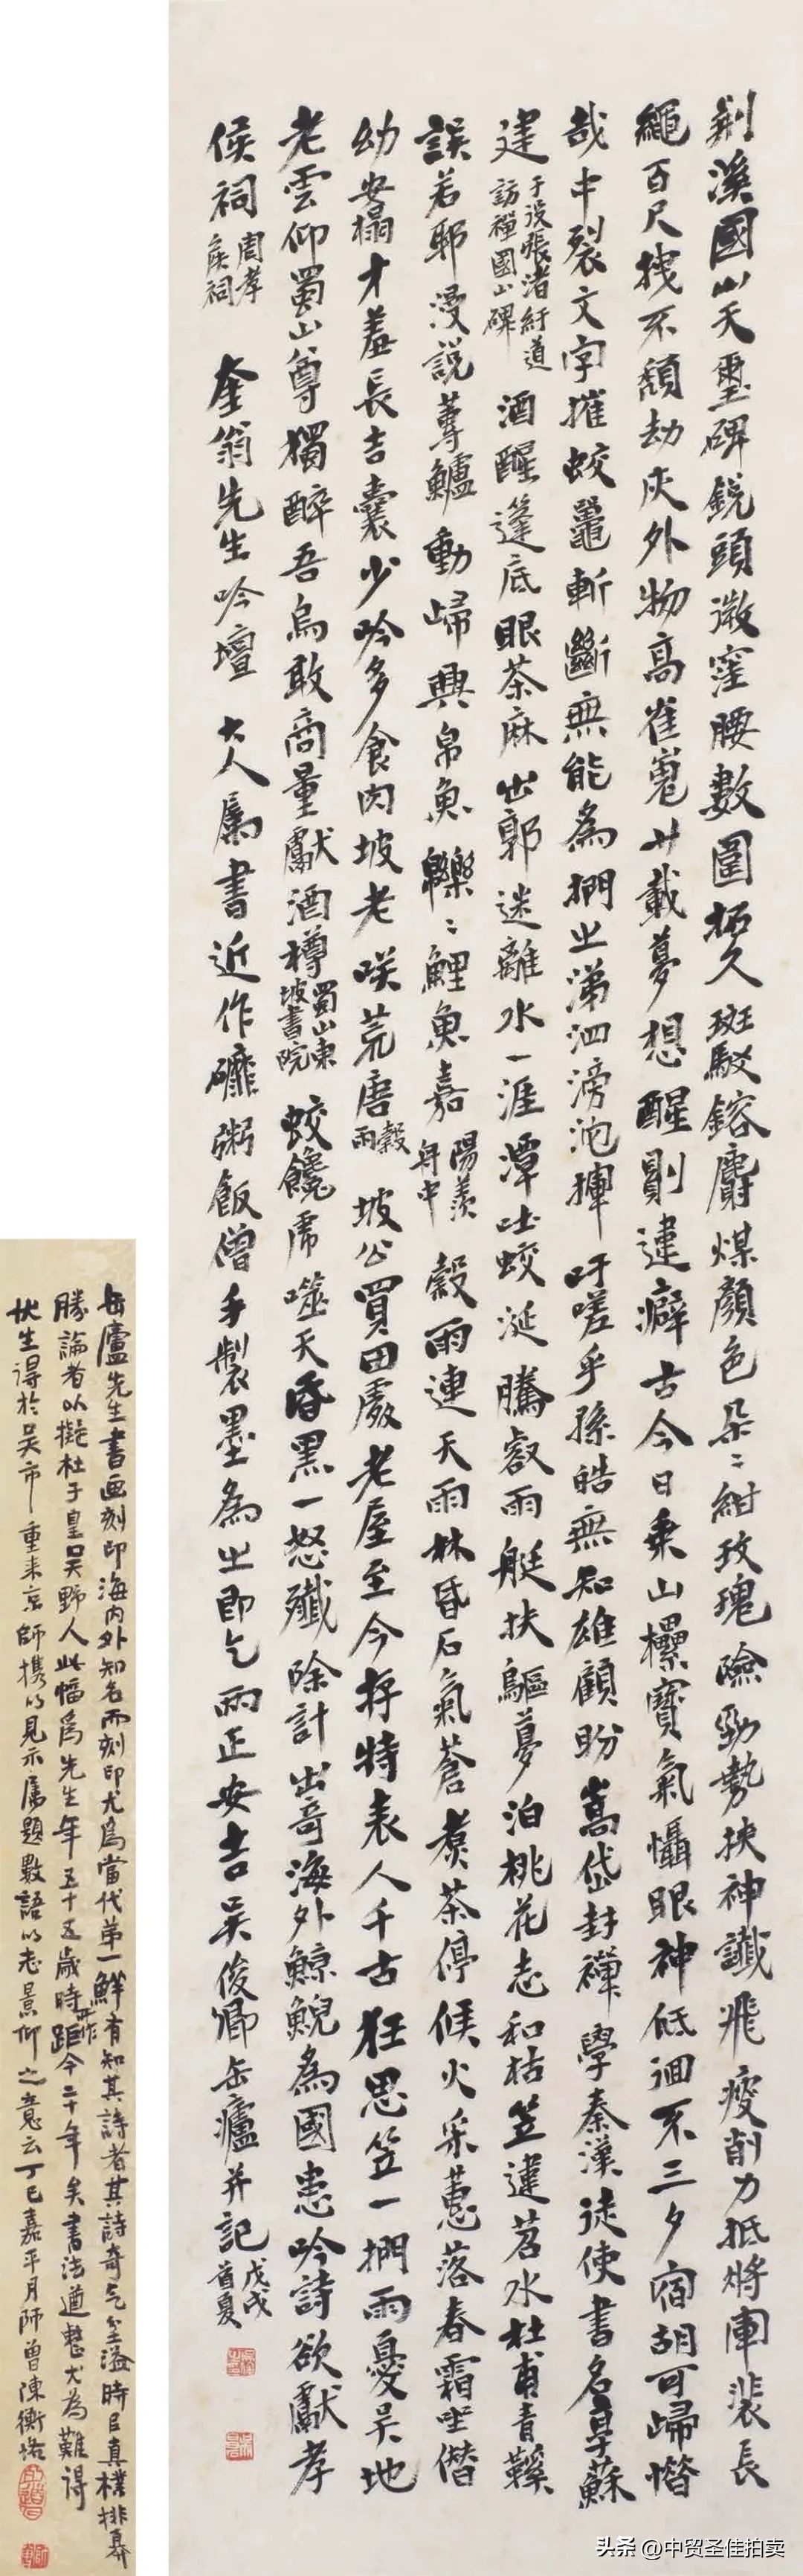 荆溪國山天璽碑銳頭微窪腰數圍拓久斑駁鎔麝煤顏色朵〻紺玫瑰險勁勢挾神讖飛瘦削力抵將軍裴長
繩百尺拽不頹劫灰外物高崔嵬廿載夢想醒則違癖古今日乘山欙寶氣懾眼神低徊不三夕宿胡可歸惜
哉中裂文字摧蛟鼉斬斷無能為捫之涕泗滂沱揮吁嗟乎孫皓無知雄顧盼嵩岱封禪學秦漢徒使書名皐蘇
建
于役張渚紆道
訪禪國山碑
酒醒篷底眼茶麻出郭迷離水一涯潭吐蛟涎騰叡雨艇扶驅夢泊桃花志和枯笠違苕水杜甫青鞵
誤若耶漫說蓴鱸動歸興帛魚轢〻鯉魚嘉
陽羨
舟中
穀雨連天雨林昏石氣蒼煑茶停候火采蕙落春霜坐偕
幼安榻才羞長吉囊少吟多食肉坡老咲荒唐
穀
雨
坡公買田處老屋至今存特表人千古狂思笠一捫雨憂吳地
老雲仰蜀山尊獨醉吾烏敢商量獻酒樽
蜀山東
坡書院
蛟饞虎噬天昏黑一怒殲除計出奇海外鯨鯢為國患吟詩欲獻孝
侯祠
周孝
侯祠
奎翁先生吟壇
大人屬書近作礳粥飯僧手製墨為之即乞兩正安吉吳俊卿缶廬并記
戊戌
首夏
缶廬先生書画刻印海內外知名而刻印尤為當代第一鮮有知其詩者其詩奇气坌溢時臣真樸排奡
勝論者以擬杜于皇吳野人此幅為先生年五十五歲時所作距今二十年矣書法遒整尤為難得
伏生得於吳市重来京師携以見示属題數語以志景仰之意云丁巳嘉平月師曾陳衡恪
头条 @中贸圣佳拍卖